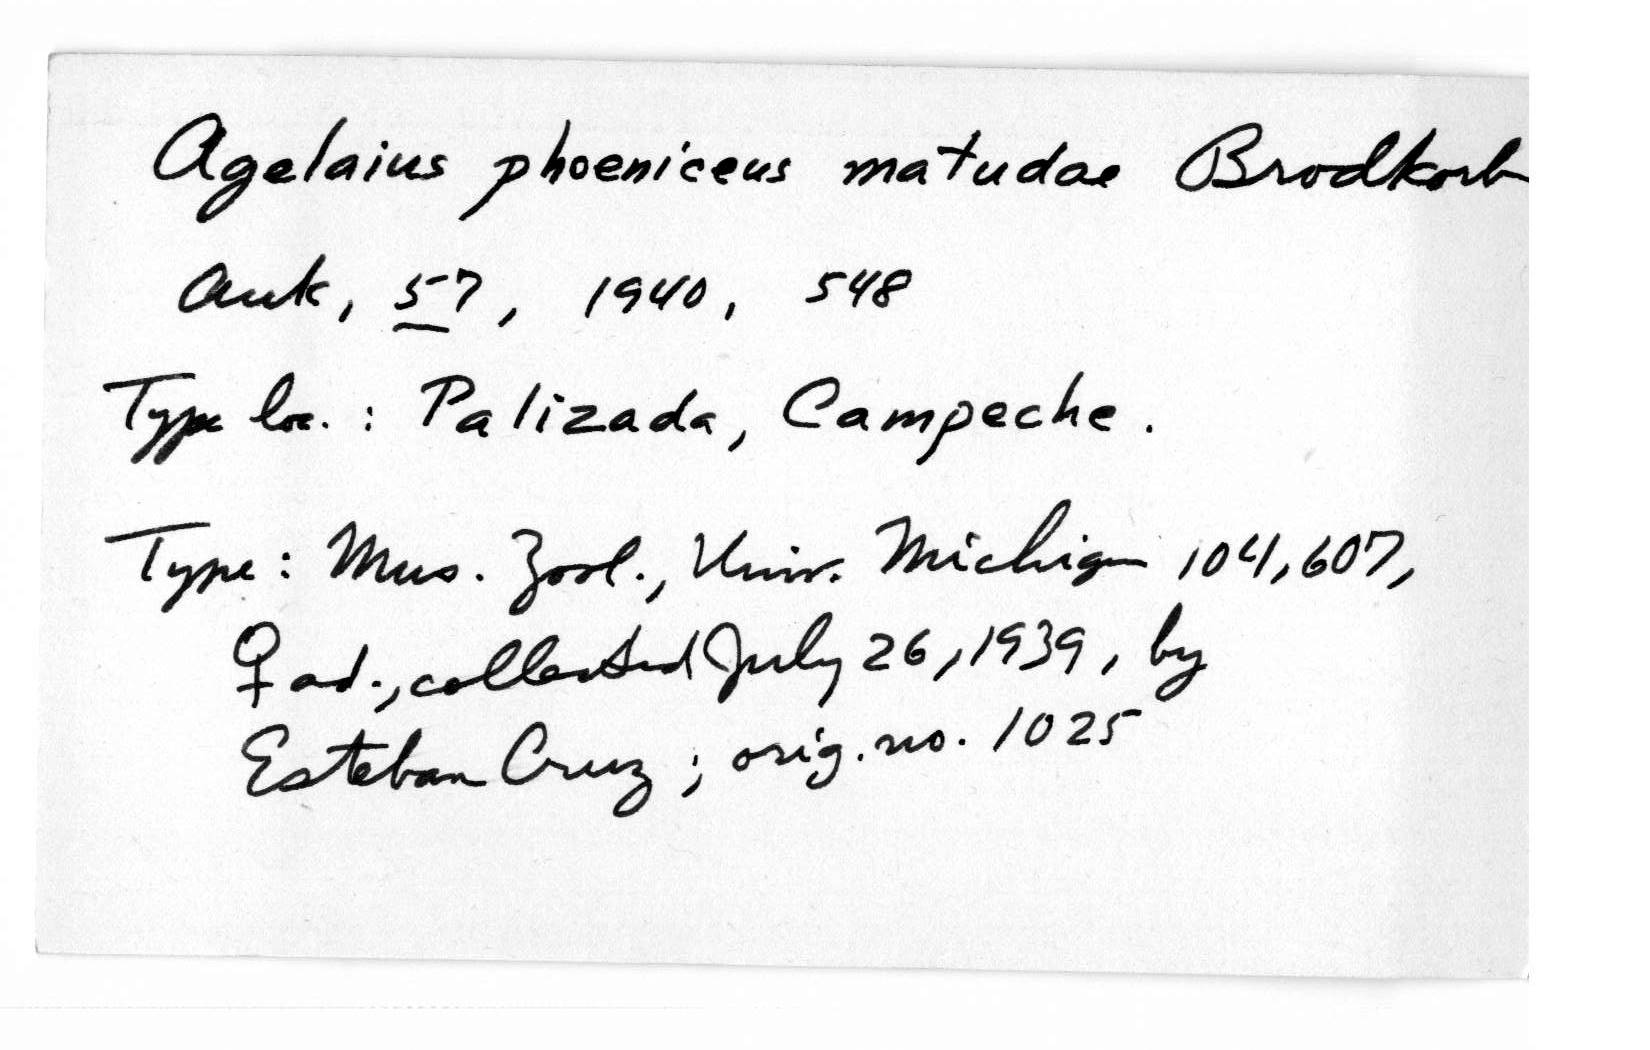 Agelaius phoeniceus matudae Brodkorb
Auk, 57, 1940, 548
Type loc. : Palizada, Campeche.
Type : Mus. Zool., Univ. Michigan 104,607,
♀ ad., collected July 26, 1939, by
Esteban Cruz ; orig. no. 1025